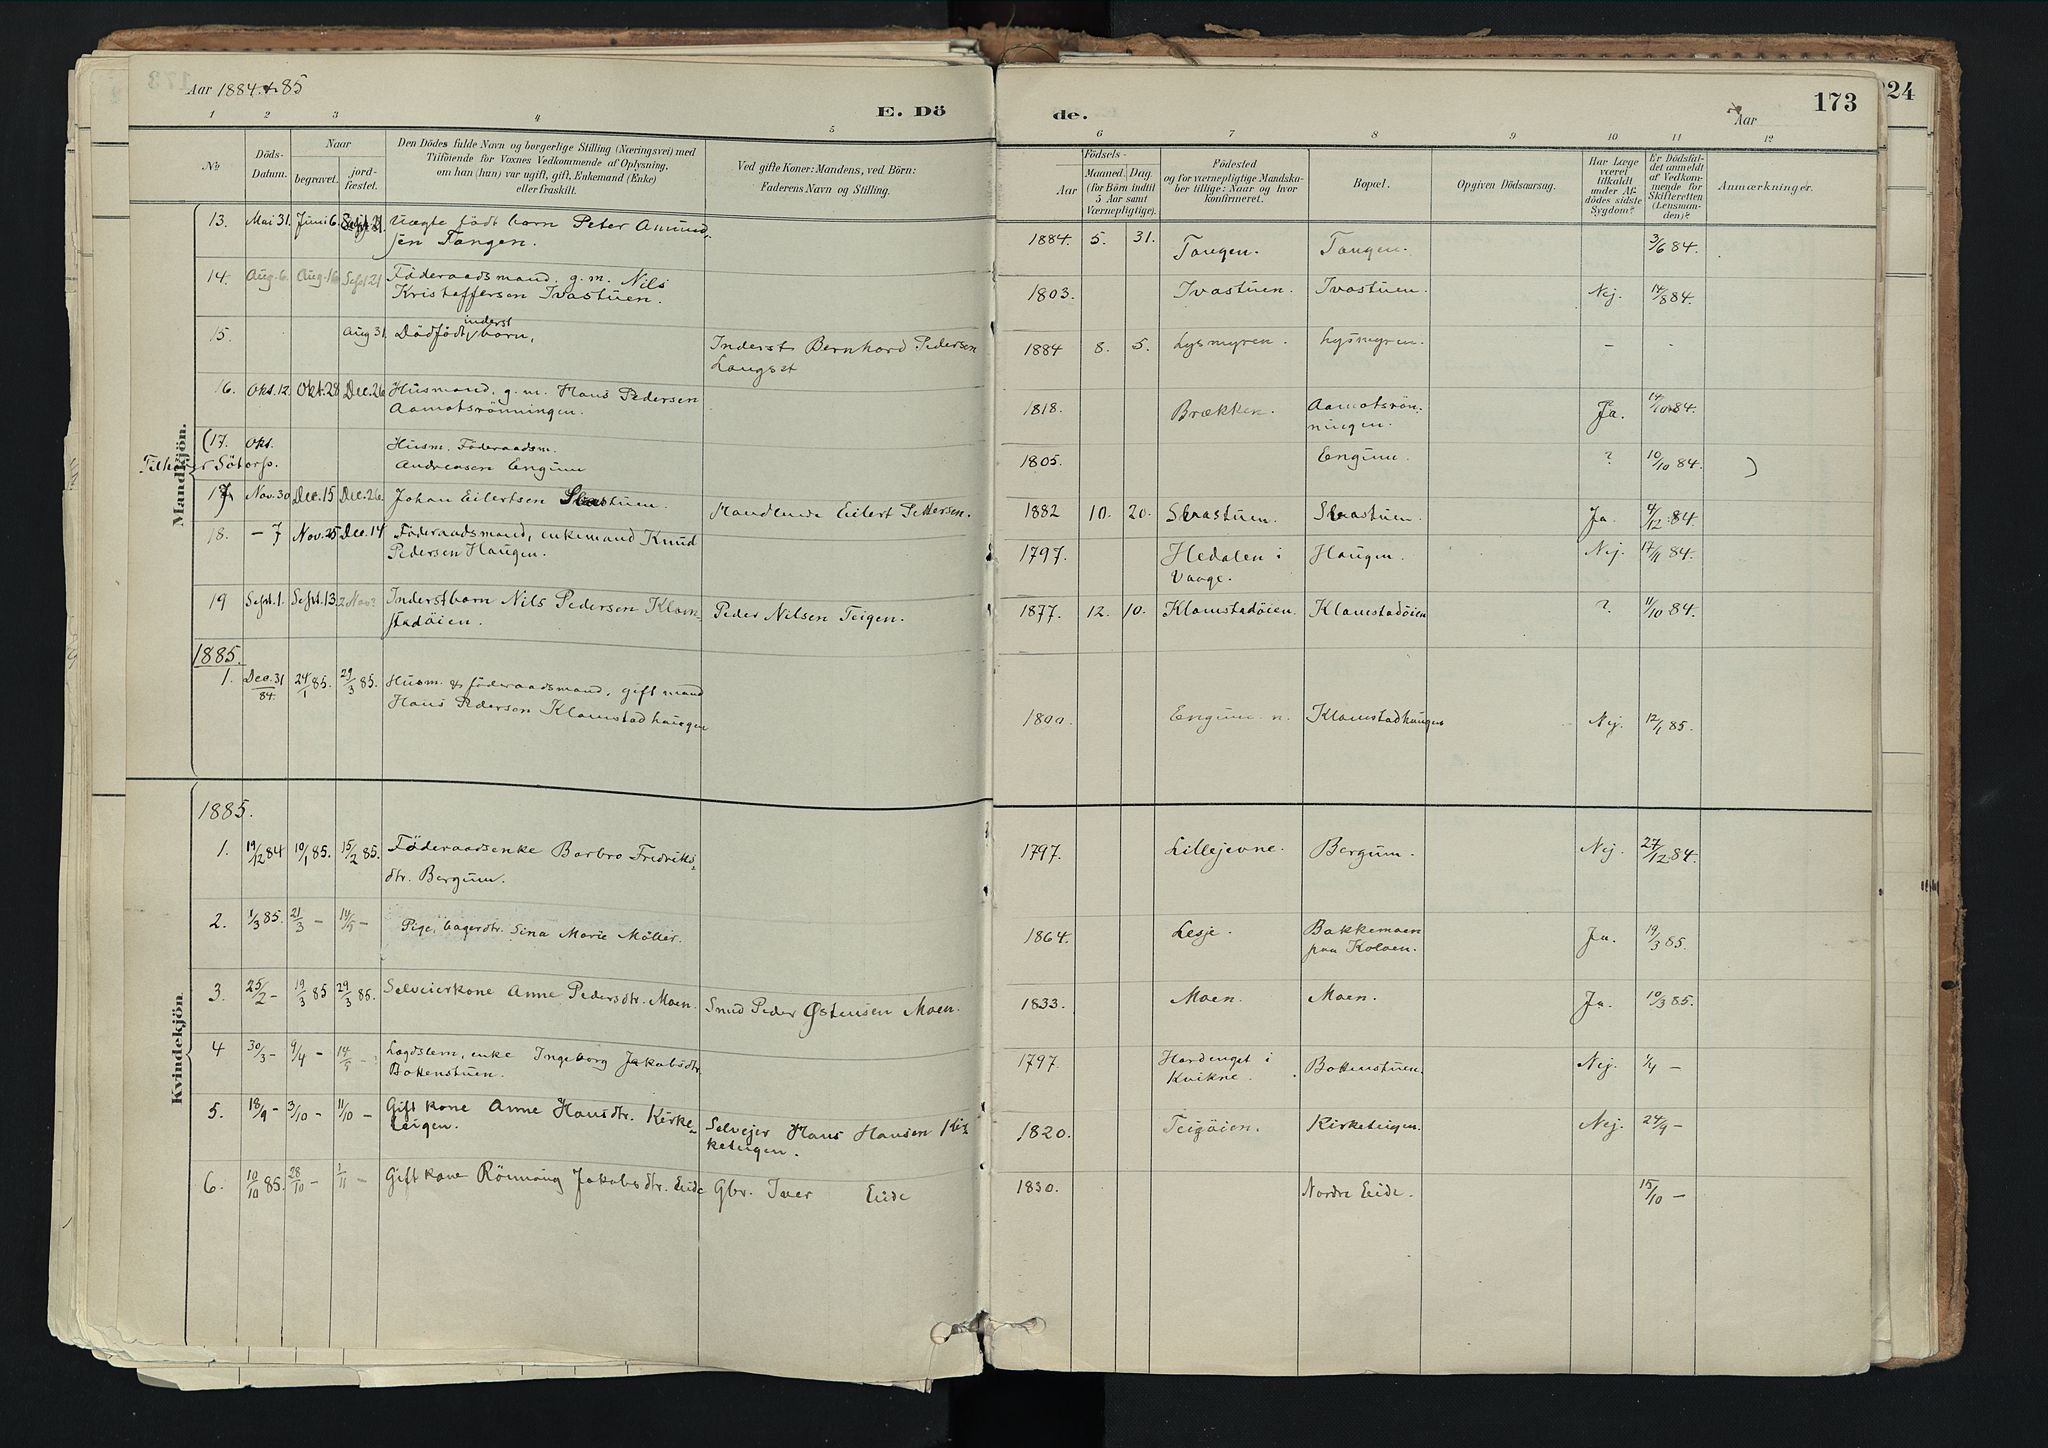 Aar 1884 & 85
E. Dö
de.
173
Aar
224
1 2 3 4 5 6 7 8 9 10 11 12
No.
Döds-
Datum.
Naar
begravet.
jord-
fæstet.
Den Dödes fulde Navn og borgerlige Stilling (Næringsvei) med
Tilföiende for Voxnes Vedkommende af Oplysning,
om han (hun) var ugift, gift, Enkemand (Enke)
eller fraskilt.
Ved gifte Koner: Mandens, ved Börn:
Faderens Navn og Stilling.
Födsels-
Aar
Maaned. Dag
(for Börn indtil
5 Aar samt
Værnepligtige).
Födested
og for værnepligtige Mandska-
ber tillige: Naar og hvor
konfirmeret.
Bopæl.
Opgiven Dödsaarsag.
Har Læge
været
tilkaldt
under Af-
dödes sidste
Sygdom?
Er Dödsfal-
det anmeldt
af Vedkom-
mende for
Skifteretten
(Lensman-
den)?
Anmærkninger.
Mandkjön.
13. Mai 31. Juni 6. Uægte födt barn Peter Amund- 1884. 5. 31. Tangen. Tangen. 3/6 84.
sen Tangen.
14. Aug. 6. Aug. 16 Sept. 21 Föderaadsmand, g.m. Nils 1803. Ivastuen. Ivastuen. Nej. 14/8 84.
Kristoffersen Ivastuen.
inderst
15. Aug 31. Dödfödt barn, Inderst Bernhard Pedersen 1884 8. 5. Lysmyren. Lysmyren. – -
Langset
16. Okt. 12. Okt. 28 Dec. 26 Husmand, g.m. Hans Pedersen 1818. Brækken. Aamotsrön- Ja. 14/10 84.
Aamotsrönningen. ningen.
(17. Okt. Husm. Föderaadsm. 1805. Engum. ? 10/10 84. )
Tilhører Sötorp. Andreasen Engum
17 Nov. 30 Dec. 15 Dec. 26 Johan Eilertsen Slaastuen. Handlende Eilert Pettersen. 1882 10. 20. Slaastuen. Slaastuen. Ja. 4/12 84
18. – 7 Nov. 25 Dec. 14 Föderaadsmand, enkemand Knud 1797. Hedalen i Haugen. Nej. 17/11 84.
Pedersen Haugen. Vaage.
19 Sept. 1. Sept. 13 2 Nov? Inderstbarn Nils Pedersen Klom- Peder Nilsen Teigen. 1877. 12. 10. Klomstadöien. Klomstadöien ? 11/10 84.
stadöien.
1885.
1. Dec. 31/84. 24/1 85. 29/3 85. Husm. & föderaadsmand, gift mand 1800. Engum n. Klomstadhaugen Nej. 12/1 85.
Hans Pedersen Klomstadhaugen
Kvindekjön.
1885.
1. 19/12 84 10/1 85. 15/2 85. Föderaadsenke Barbro Fredriks- 1797. Lillejevne. Bergum. Nej. 27/12 84.
dtr. Bergum.
2. 1/3 85. 21/3 – 14/5 – Pige, bagerdtr. Sina Marie Möller. 1864. Lesje. Bakkemoen Ja. 19/3 85.
paa Koloen.
3. 25/2 – 19/3 85 29/3 85. Selveierkone Anne Pedersdtr. Moen. Smed Peder Østensen Moen. 1833. Moen. Moen. Ja. 10/3 85.
4 30/3 – 9/4 – 14/5 – Lægdslem, enke Ingeborg Jakobsdtr. 1797. Hardenget i Bottenstuen. Nej. 1/4 –
Bottenstuen. Kvikne.
5. 18/9 – 3/10 – 11/10 – Gift kone Anne Hansdtr. Kirke- Selvejer Hans Hansen Kir- 1820. Teigöien. Kirketeigen. Nej. 24/9 –
teigen. keteigen.
6. 10/10 85. 28/10 – 1/11 – Gift kone Rönnaug Jakobsdtr. Eide Gbr. Iver Eide 1830. Nordre Eide. 15/10 –